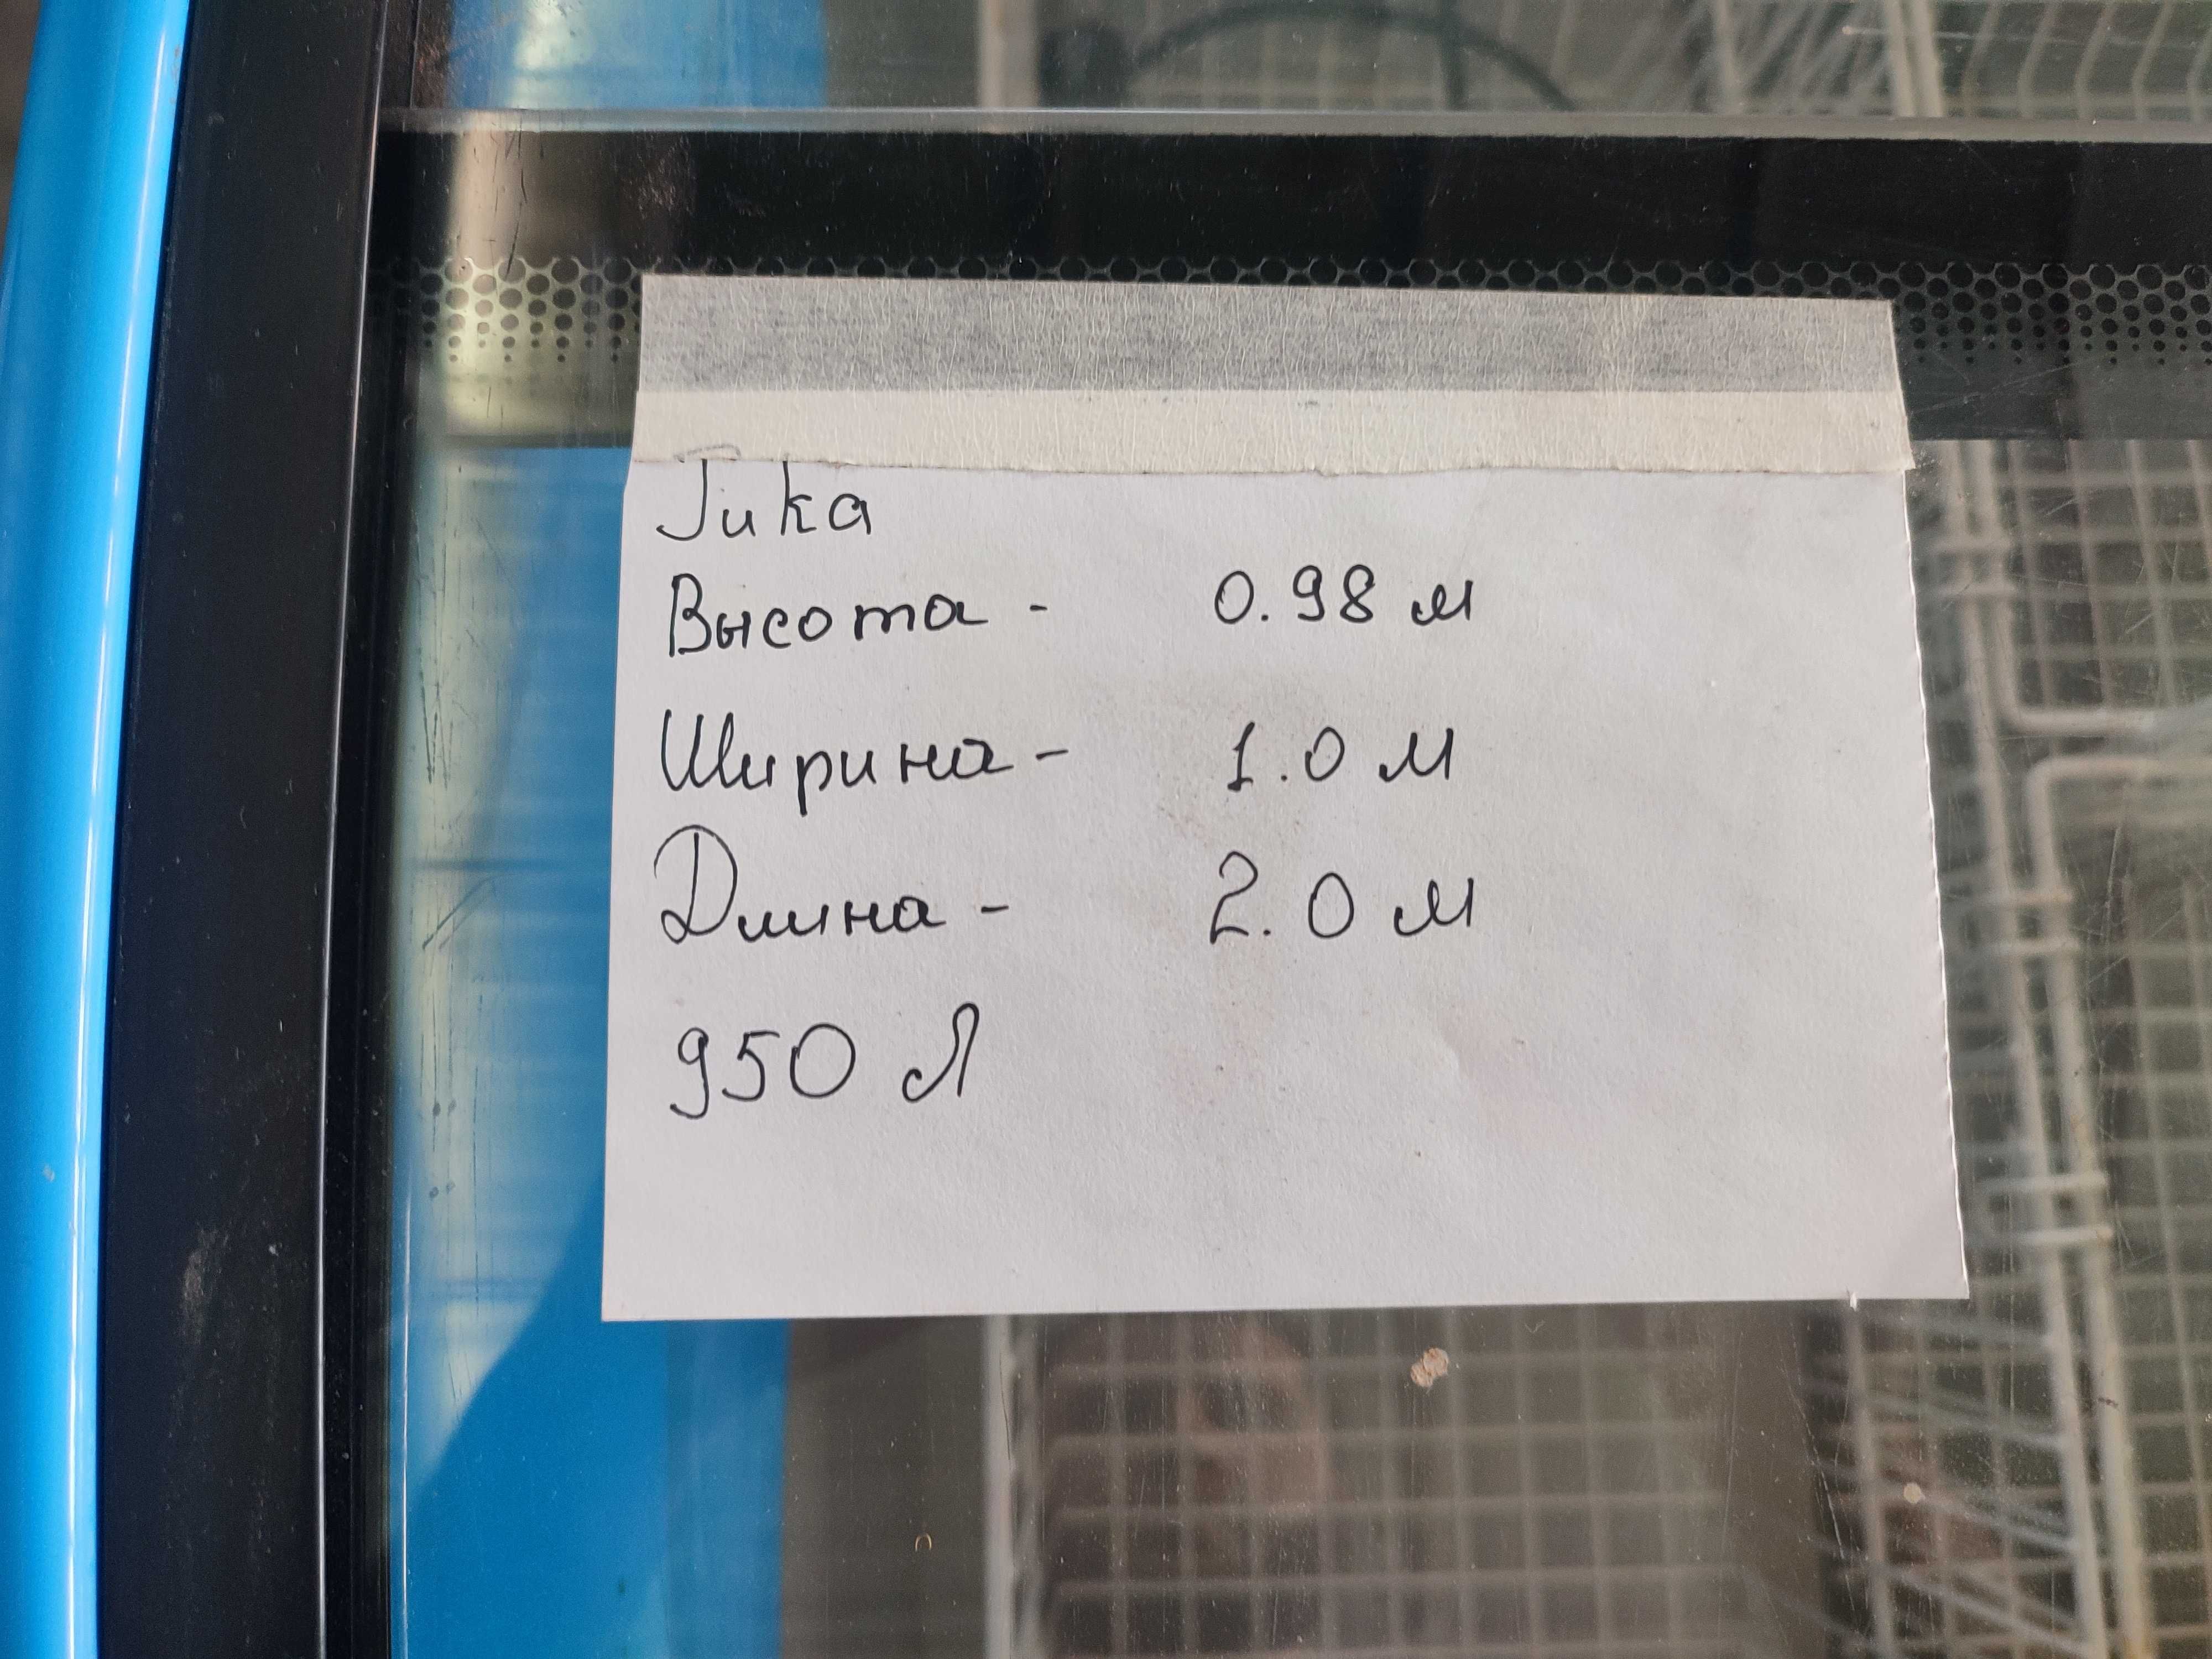 Juka
Высота - 0.98 м
Ширина - 1.0 м
Длина - 2.0 м
950 Л